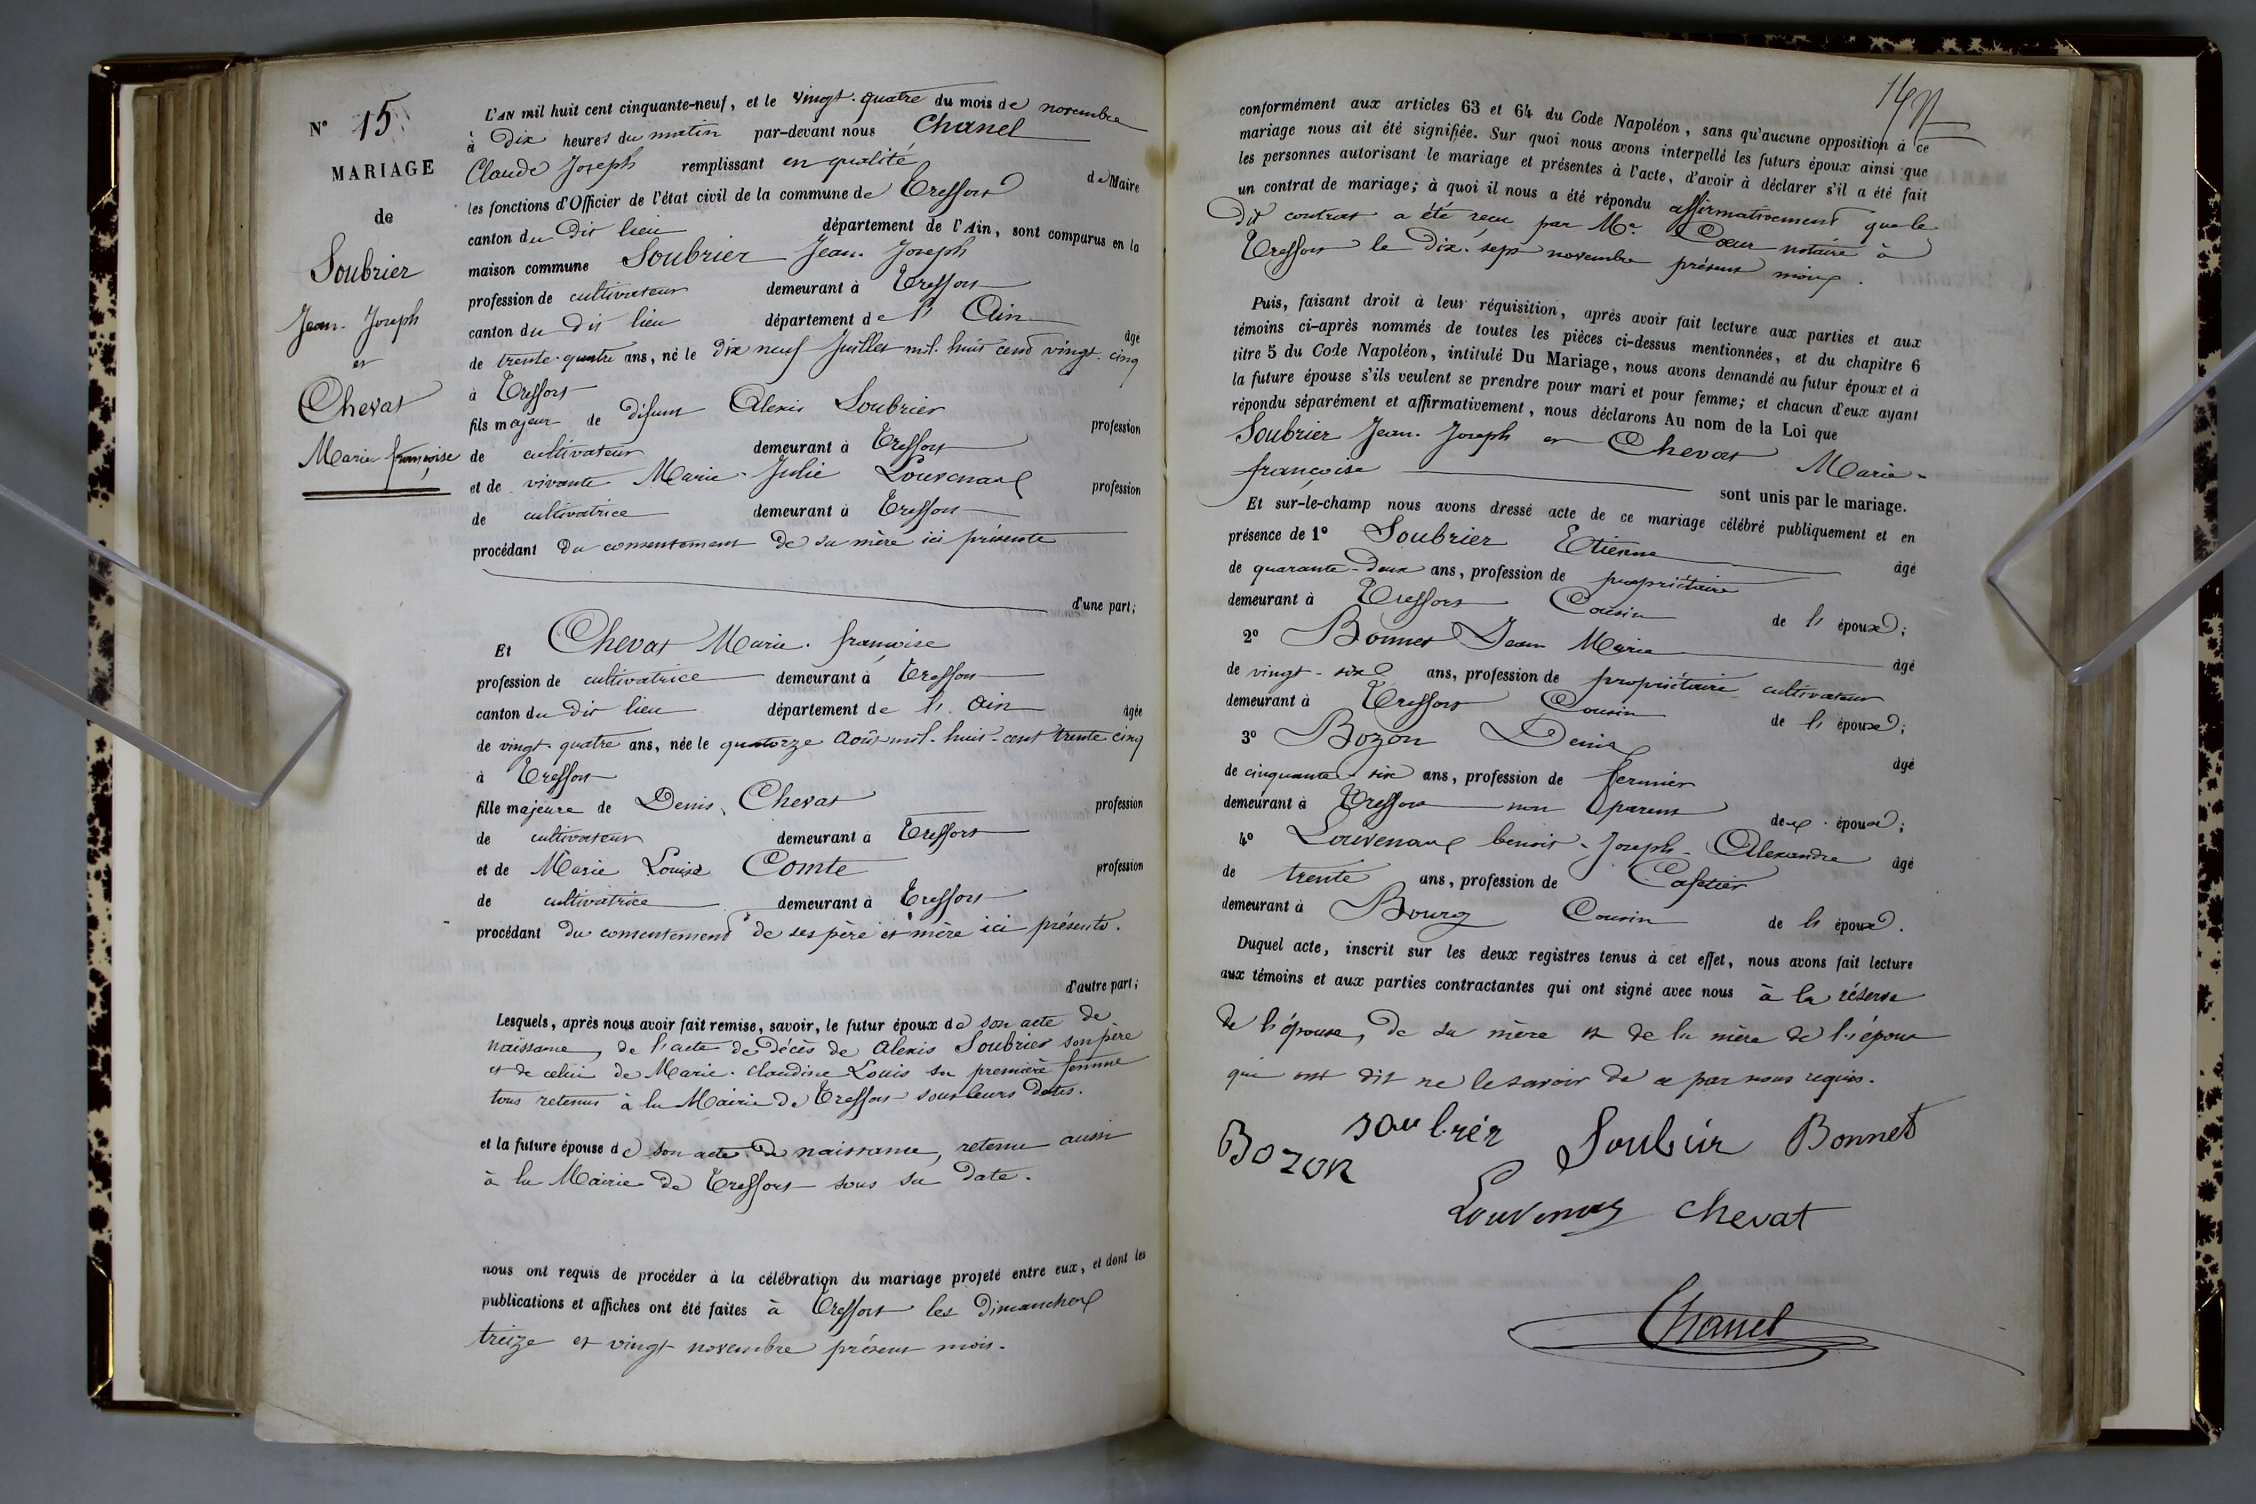 N° 15
MARIAGE
de
Soubrier
Jean-Joseph
et
Chevat
Marie françoise
L'AN mil huit cent cinquante-neuf, et le vingt-quatre du mois de novembre
à Dix heures du matin par-devant nous Chanel
Claude Joseph remplissant en qualité de Maire
les fonctions d'Officier de l'état civil de la commune de Treffort
canton du Dit lieu département de l'Ain, sont comparus en la
maison commune Soubrier Jean-Joseph
profession de cultivateur demeurant à Treffort
canton du Dit lieu département de l'Ain âgé
de trente-quatre ans, né le Dix neuf Juillet mil-huit cent vingt-cinq
à Treffort
fils majeur de Défunt Alexis Soubrier profession
de cultivateur demeurant à Treffort
et de vivante Marie-Julie Louvenaux profession
de cultivatrice demeurant à Treffort
procédant Du consentement De sa mère ici présente
d'une part;
Et Chevat Marie-françoise
profession de cultivatrice demeurant à Treffort
canton du Dit lieu département de l'Ain âgée
de vingt-quatre ans, née le quatorze Août mil-huit-cent trente cinq
à Treffort
fille majeure de Denis Chevat profession
de cultivateur demeurant à Treffort
et de Marie Louise Comte profession
de cultivatrice demeurant à Treffort
procédant Du consentement de ses père et mère ici présents.
d'autre part;
Lesquels, après nous avoir fait remise, savoir, le futur époux de son acte de
naissance, de l'acte de décès de Alexis Soubrier son père
et de celui de Marie-Claudine Louis sa première femme
tous retenus à la Mairie de Treffort sous leurs Dates.
et la future épouse de son acte de naissance, retenu aussi
à la Mairie de Treffort sous sa date.
nous ont requis de procéder à la célébration du mariage projeté entre eux, et dont les
publications et affiches ont été faites à Treffort les Dimanches
treize et vingt novembre présent mois.
conformément aux articles 63 et 64 du Code Napoléon, sans qu'aucune opposition à ce
mariage nous ait été signifiée. Sur quoi nous avons interpellé les futurs époux ainsi que
les personnes autorisant le mariage et présentes à l'acte, d'avoir à déclarer s'il a été fait
un contrat de mariage; à quoi il nous a été répondu affirmativement que le
Dit contrat a été reçu par Me Cœur notaire à
Treffort le Dix-sept novembre présent mois.
Puis, faisant droit à leur réquisition, après avoir fait lecture aux parties et aux
témoins ci-après nommés de toutes les pièces ci-dessus mentionnées, et du chapitre 6
titre 5 du Code Napoléon, intitulé Du Mariage, nous avons demandé au futur époux et à
la future épouse s'ils veulent se prendre pour mari et pour femme; et chacun d'eux ayant
répondu séparément et affirmativement, nous déclarons Au nom de la Loi que
Soubrier Jean-Joseph et Chevat Marie-
françoise sont unis par le mariage.
Et sur-le-champ nous avons dressé acte de ce mariage célébré publiquement et en
présence de 1° Soubrier Etienne âgé
de quarante-Deux ans, profession de propriétaire
demeurant à Treffort Cousin de l'époux;
2° Bonnet Jean Marie âgé
de vingt-six ans, profession de propriétaire cultivateur
demeurant à Treffort Cousin de l'époux;
3° Bozon Denis âgé
de cinquante-six ans, profession de fermier
demeurant à Treffort non parent des époux;
4° Louvenaux benoit-Joseph-Alexandre âgé
de trente ans, profession de Cafetier
demeurant à Bourg Cousin de l'époux.
Duquel acte, inscrit sur les deux registres tenus à cet effet, nous avons fait lecture
aux témoins et aux parties contractantes qui ont signé avec nous à la réserve
de l'épouse, de sa mère et de la mère de l'époux
qui ont dit ne le savoir de ce par nous requis.
soubrér Soubrier Bonnet
Bozon
Louvenaux chevat
Chanel